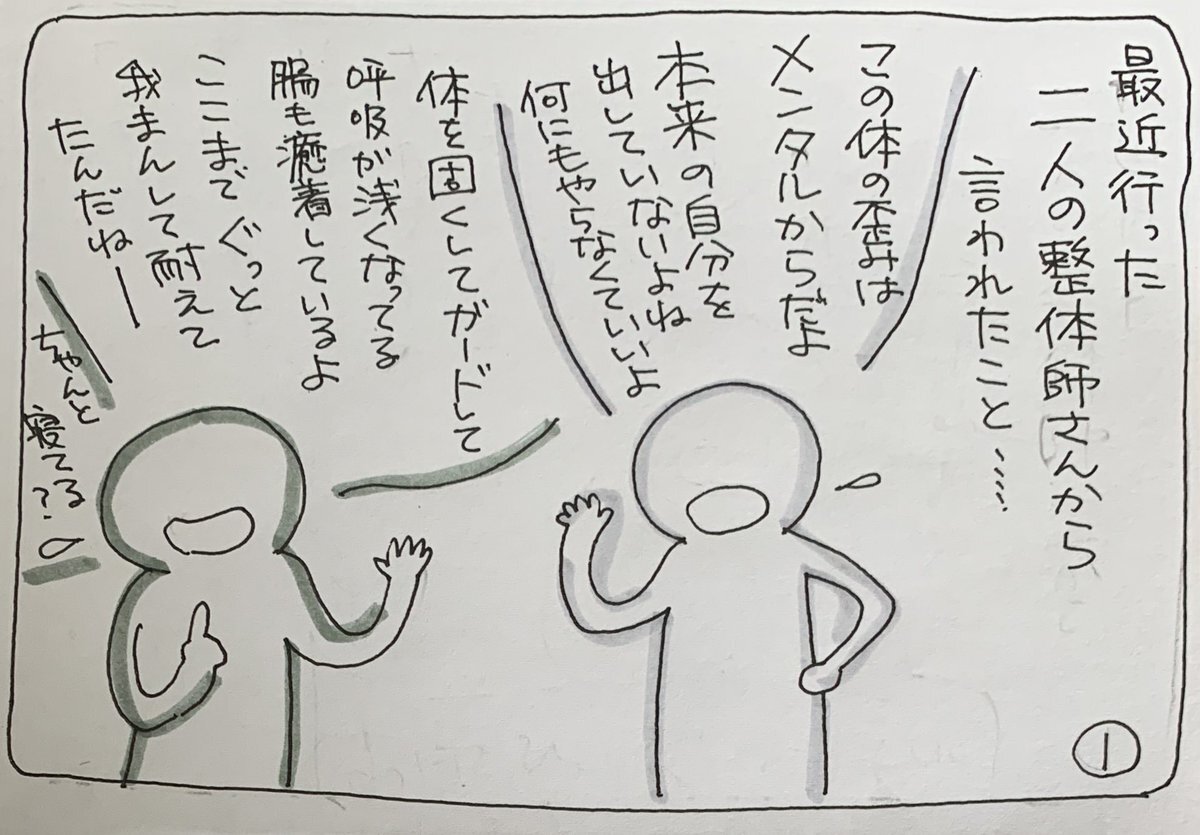 最近行った
二人の整体師さんから
言われたこと……
この体の歪みは
メンタルからだよ
本来の自分を
出していないよね
何にもやらなくていいよ
体を固くしてガードして
呼吸が浅くなってる
腸も癒着しているよ
ここまでぐっと
我まんして耐えて
たんだねー
ちゃんと
寝てる？
1